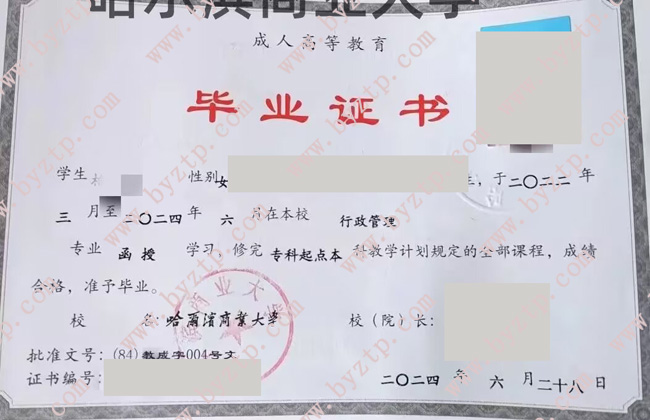 哈尔滨商业大学
成人高等教育
毕业证书
学生 性别女 生，于二〇二二年
三月至二〇二四年六月在本校 行政管理
专业 函授 学习，修完专科起点本科教学计划规定的全部课程，成绩
合格，准予毕业。
校 名：哈爾濱商業大学 校（院）长：
批准文号：(84)教成字004号文
证书编号：
二〇二四年六月二十八日
www.byztp.com